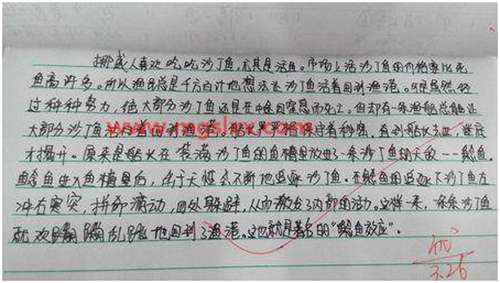 挪威人喜欢吃沙丁鱼,尤其是活鱼。市场上活沙丁鱼的价格要比死
鱼高许多。所以渔民总是千方百计地想法让沙丁鱼活着回到渔港。可是虽然经
过种种努力,大部分沙丁鱼还是在中途因窒息而死亡。但却有一条渔船总能让
大部分沙丁鱼活着回到渔港。船长严格保守着秘密。直到船长去世,谜底
才揭开。原来是船长在装满沙丁鱼的鱼槽里放进了一条沙丁鱼的天敌——鲶鱼。
鲶鱼进入鱼槽里后,由于天性会不断地追逐沙丁鱼。在鲶鱼的追逐下沙丁鱼左
冲右突,拼命游动,四处躲避,从而激发了内部的活力。这样一来,一条条沙丁鱼
就欢蹦乱跳地回到了渔港。这也就是著名的“鲶鱼效应”。
www.mgslxx.com
优
3.26